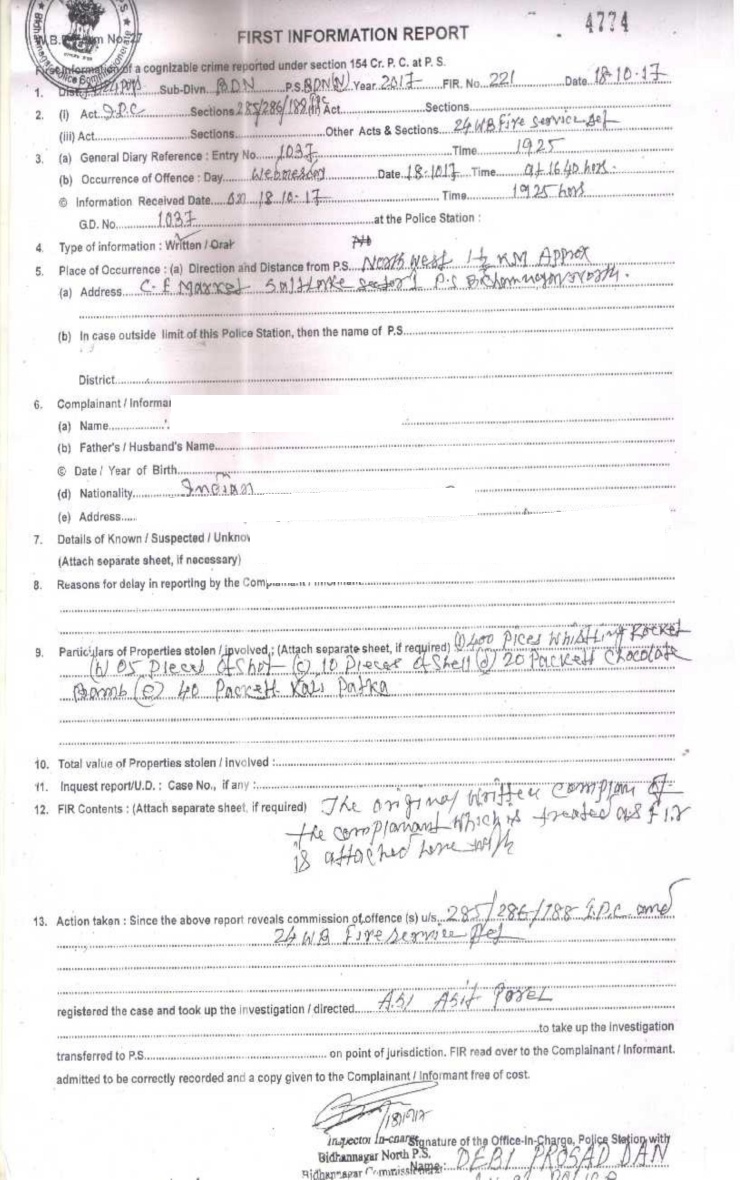 4774
FIRST INFORMATION REPORT
W.B. Form No. 27
First Information of a cognizable crime reported under section 154 Cr. P. C. at P. S.
1. Dist. Sub-Divn. BDN P.S. BDN(N) Year 2017 FIR. No. 221 Date 18-10-17
2. (I) Act I.P.C Sections 285/286/188 IPC Act Sections
(iii) Act Sections Other Acts & Sections 24 WB Fire service Act
3. (a) General Diary Reference : Entry No. 1037 Time 1925
(b) Occurrence of Offence : Day Wednesday Date 18-1017 Time at 16.40 hrs.
© Information Received Date on 18-10-17 Time 1925 hrs
G.D. No. 1037 at the Police Station :
4. Type of information : Written / Oral
5. Place of Occurrence : (a) Direction and Distance from P.S. North West 1½ KM Approx
(a) Address C.F Market Saltlake sector 1 P.S Bidhannagar North.
(b) In case outside limit of this Police Station, then the name of P.S.
District
6. Complainant / Informa
(a) Name
(b) Father's / Husband's Name
© Date / Year of Birth
(d) Nationality Indian
(e) Address
7. Details of Known / Suspected / Unknow
(Attach separate sheet, if necessary)
8. Reasons for delay in reporting by the Complainant / Informant
9. Particulars of Properties stolen / involved : (Attach separate sheet, if required) 400 Pices Whistling Rocket
(b) 05 Pieces of Shot (c) 10 Pieces of Shell (d) 20 Packett Chocolate
Bomb (e) 40 Packett Kali Patka
10. Total value of Properties stolen / Involved :
11. Inquest report/U.D. : Case No., if any :
12. FIR Contents : (Attach separate sheet, if required) The original written complain of
the complanant which is treated as F.I.R
is attached here with
13. Action taken : Since the above report reveals commission of offence (s) u/s. 285/286/188 I.P.C and
24 WB Fire service Act
registered the case and took up the investigation / directed ASI Asif
to take up the investigation
transferred to P.S. on point of jurisdiction. FIR read over to the Complainant / Informant.
admitted to be correctly recorded and a copy given to the Complainant / Informant free of cost.
18/10/17
Inspector In-charge Signature of the Office-In-Charge, Police Station with
Bidhannagar North P.S.
Bidhannagar Commiss Name : DEBI PROSAD DAN